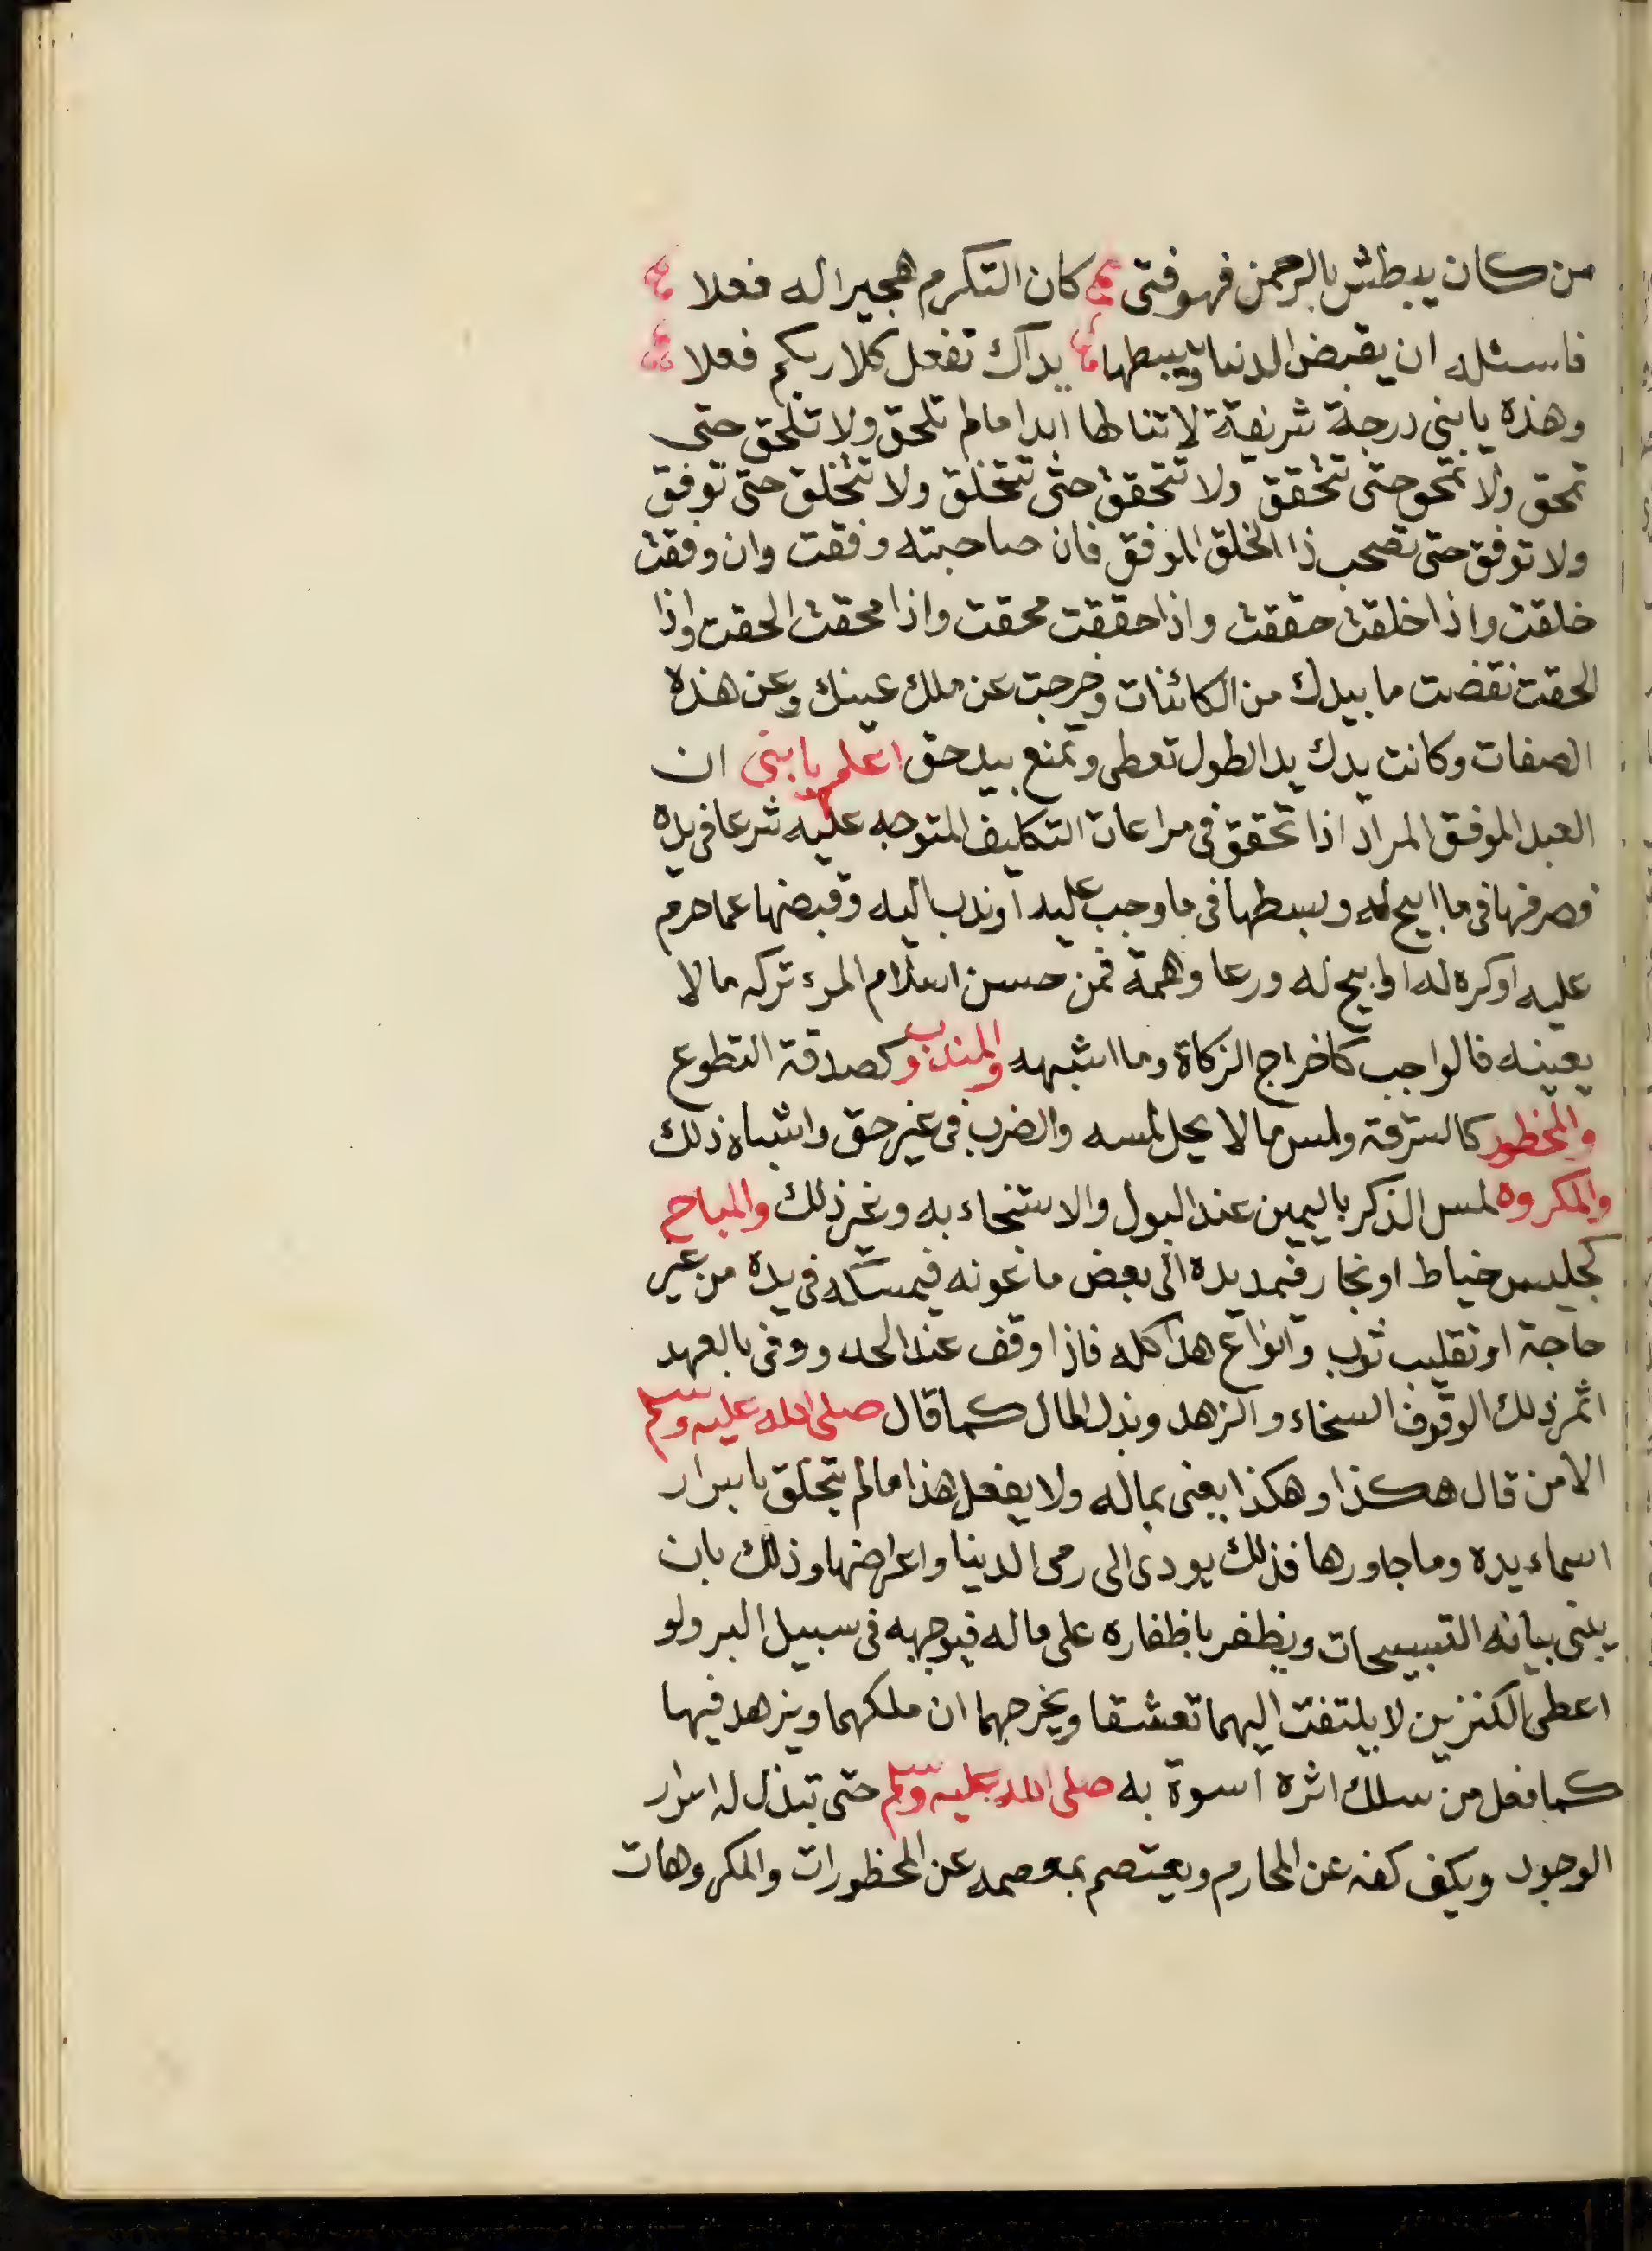 من كان يبطش بالرحمن فهو فتى كان التكرم هجيرا له فعلا
فاسئله ان يقبض الدنيا ويبسطها يداك تفعل كلا ربكم فعلا
وهذه يا بنى درجة شريفة لا تنالها ابدا مالم تلحق ولا تلحق حتى
تمحق ولا تمحق حتى تحقق ولا تتحقق حتى تتخلق ولا تتخلق حتى توفق
ولا توفق حتى تصحب ذا الخلق الموفق فان صاحبته وفقت وان وفقت
خلقت واذا خلقت حققت واذا حققت محقت واذا محقت الحقت واذا
الحقت نفضت ما بيدك من الكائنات وخرجت عن ملك عينك وعن هذه
الصفات وكانت يدك يد الطول تعطى وتمنع بيد حق اعلم يا بنى ان
العبد الموفق المراد اذا تحقق فى مراعات التكليف المتوجه عليه شرعا فى يده
فصرفها فى ما ابيح له وبسطها فى ما وجب عليه او ندب اليه وقبضها عما حرم
عليه او كره له او ابيح له ورعا وهمة فمن حسن اسلام المرء تركه ما لا
يعينه فالواجب كاخراج الزكاة وما اشبهه والمندوب كصدقة التطوع
والمحظور كالسرقة ولمس ما لا يحل لمسه والضرب فى غير حق واشباه ذلك
والمكروه لمس الذكر باليمين عند البول والاستنجاء به وغير ذلك والمباح
كجليس خياط او نجار فيمد يده الى بعض ماعونه فيمسكه فى يده من غير
حاجة او تقليب ثوب وانواع هذا كله فاذا وقف عند الحد ووفى بالعهد
اثمر ذلك الوقوف السخاء والزهد وبذل المال كما قال صلى الله عليه وسلم
الا من قال هكذا وهكذا يعنى بماله ولا يفعل هذا مالم يتخلق باسرار
اسماء يده وما جاورها فذلك يودى الى رمى الدينا واعراضها وذلك بان
يثنى ببانه التسبيحات ويظفر باظفاره على ماله فيوجهه فى سبيل البر ولو
اعطى الكنزين لا يلتفت اليهما تعشقا ويخرجهما ان ملكهما ويزهد فيها
كما فعل من سلك اثره اسوة به صلى الله عليه وسلم حتى تبذل له اسرار
الوجود ويكف كفه عن المحارم ويعتصم بمعصمه عن المحظورات والمكروهات